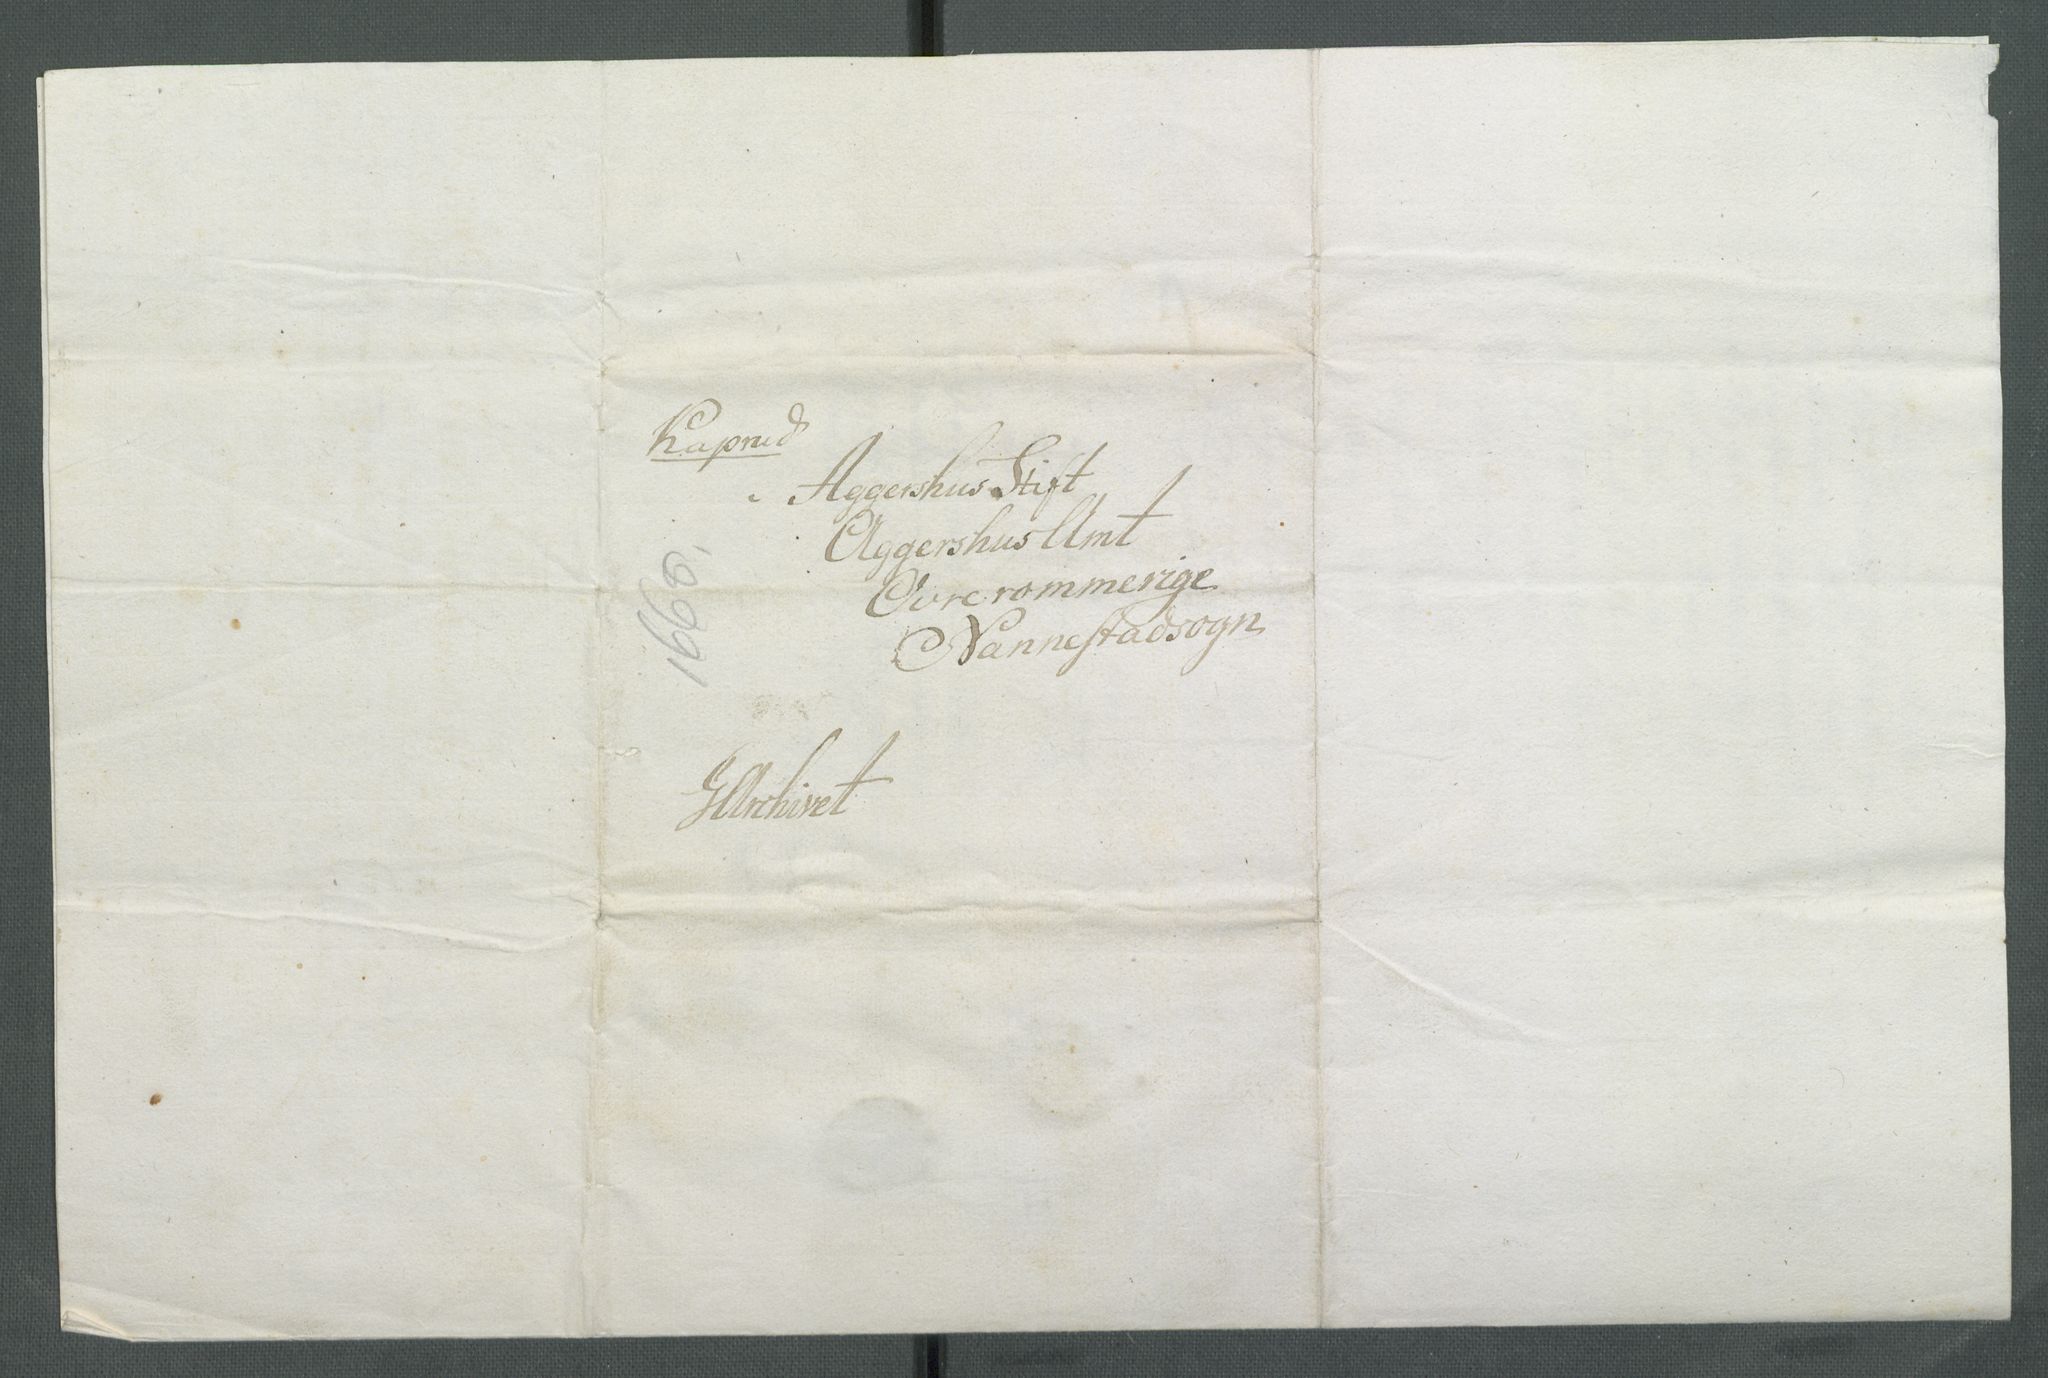 Kaprud
Aggershus Stift
Aggershus Amt
Ovre rommerige
Nannestad sogn
J Archivet
1668.